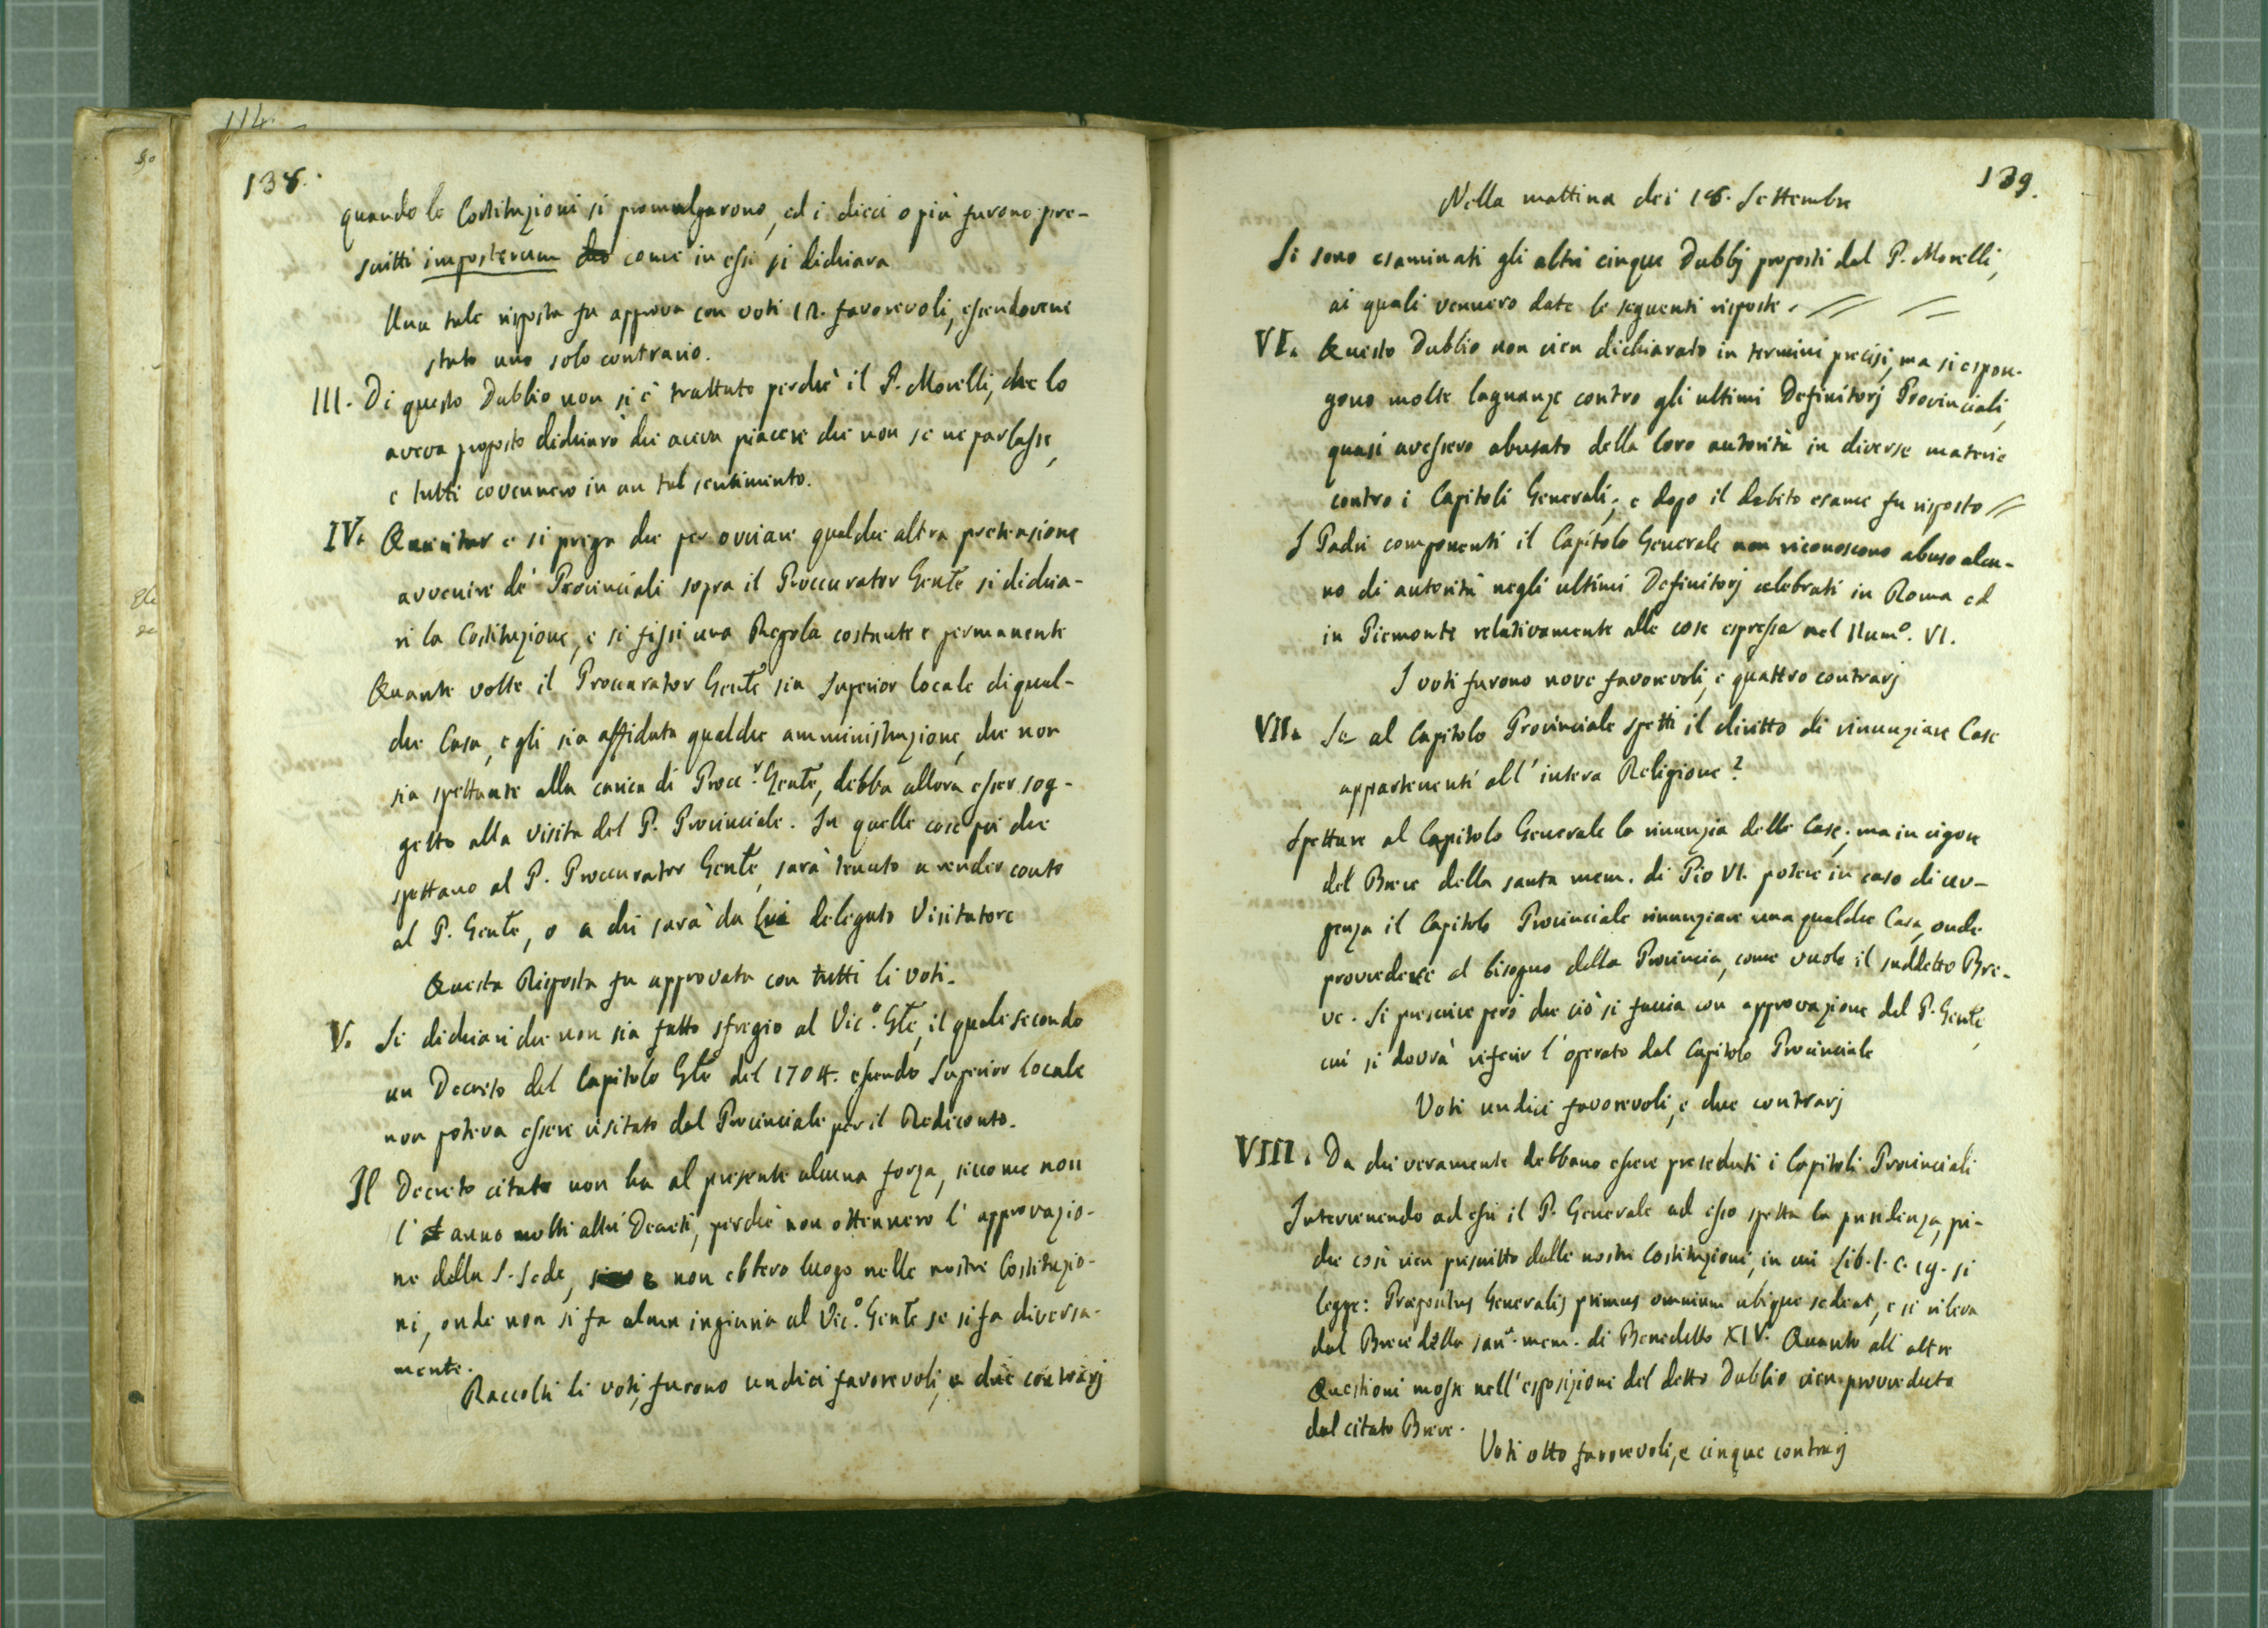 114.
138.
quando le Costituzioni si promulgarono, ed i dieci o più furono pre-
scritti imposterum come in esse si dichiara
Una tale risposta fu approva con voti 12. favorevoli, essendovene
stato uno solo contrario.
III. Di questo Dubbio non si è trattato perchè il P. Morelli, che lo
aveva proposto dichiarò che aveva piacere che non se ne parlasse,
e tutti convennero in un tal sentimento.
IV. Quaeritur e si prega che per ovviare qualche altra pretensione
avvenire de' Provinciali sopra il Proccurator Gente si dichia-
ri la Costituzione, e si fissi una Regola costante e permanente
Quante volte il Proccurator Gente sia Superior locale di qual-
che Casa, e gli sia affidata qualche amministrazione, che non
sia spettante alla carica di Procc.r Gente, debba allora esser sog-
getto alla visita del P. Provinciale. In quelle cose poi che
spettano al P. Proccurator Gente, sarà tenuto a render conto
al P. Gente, o a chi sarà da lui delegato Visitatore
Questa Risposta fu approvata con tutti li voti.
V. Si dichiari che non sia fatto sfregio al Vic.o Gte, il quale secondo
un Decreto del Capitolo Gte del 1704. essendo Superior locale
non poteva essere visitato dal Provinciale per il Rediconto.
Il Decreto citato non ha al presente alcuna forza, siccome non
l' anno molti altri Decreti, perchè non ottennero l' approvazio-
ne della S. Sede, e non ebbero luogo nelle nostre Costituzio-
ni, onde non si fa alcuna ingiuria al Vic.o Gente se si fa diversa-
mente.
Raccolti li voti, furono undici favorevoli, e due contrarj
139.
Nella mattina dei 18. Settembre
Si sono esaminati gli altri cinque Dubbj proposti dal P. Morelli,
ai quali vennero date le seguenti risposte. // =
VI. Questo Dubbio non vien dichiarato in termini precisi, ma si espon-
gono molte lagnanze contro gli ultimi Definitorj Provinciali,
quasi avessero abusato della loro autorità in diverse materie
contro i Capitoli Generali; e dopo il debito esame fu risposto //
I Padri componenti il Capitolo Generale non riconoscono abuso alcu-
no di autorità negli ultimi Definitorj celebrati in Roma ed
in Piemonte relativamente alle cose espresse nel Num.o VI.
I voti furono nove favorevoli, e quattro contrarj
VII. Se al Capitolo Provinciale spetti il diritto di rinunziare Case
appartenenti all' intera Religione?
Spettare al Capitolo Generale la rinunzia delle Case; ma in vigore
del Breve della santa mem. di Pio VI. potere in caso di urv-
genza il Capitolo Provinciale rinunziare una qualche Casa, onde
provvedere al bisogno della Provincia, come vuole il suddetto Bre-
ve. Si prescrive però che ciò si faccia con approvazione del P. Gente,
cui si dovrà riferir l' operato dal Capitolo Provinciale
Voti undici favorevoli, e due contrarj
VIII. Da chi veramente debbano essere preseduti i Capitoli Provinciali
Intervenendo ad essi il P. Generale ad esso spetta la presidenza, poi-
che così vien prescritto dalle nostre Costituzioni, in cui Lib. I. c. 19. si
legge: Praepositus Generalis primus omnium ubique sedeat, e si rileva
dal Breve della san.a mem. di Benedetto XIV. Quanto all' altre
Questioni mosse nell' esposizione del detto Dubbio vien provveduto
dal citato Breve.
Voti otto favorevoli, e cinque contrarj